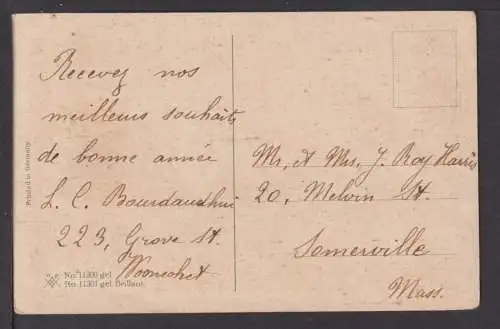 Recevez nos
meilleurs souhaits
de bonne année
L. C. Bourdaudhui
223, Grove St.
Woonsocket
Mr. & Mrs. J. Roy Harris
20, Melvin St.
Somerville
Mass.
Printed in Germany.
No. 11300 gel.
No. 11301 gel. Brillant.